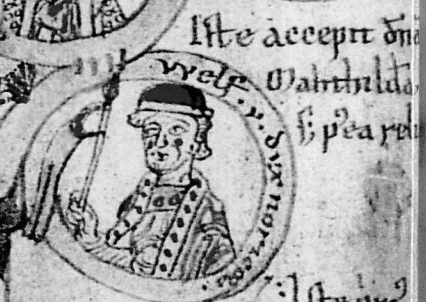 Iste accepit dn̄a
Mahthilda
s; p'ea reli
Welf. v. dux noricus.
Iste